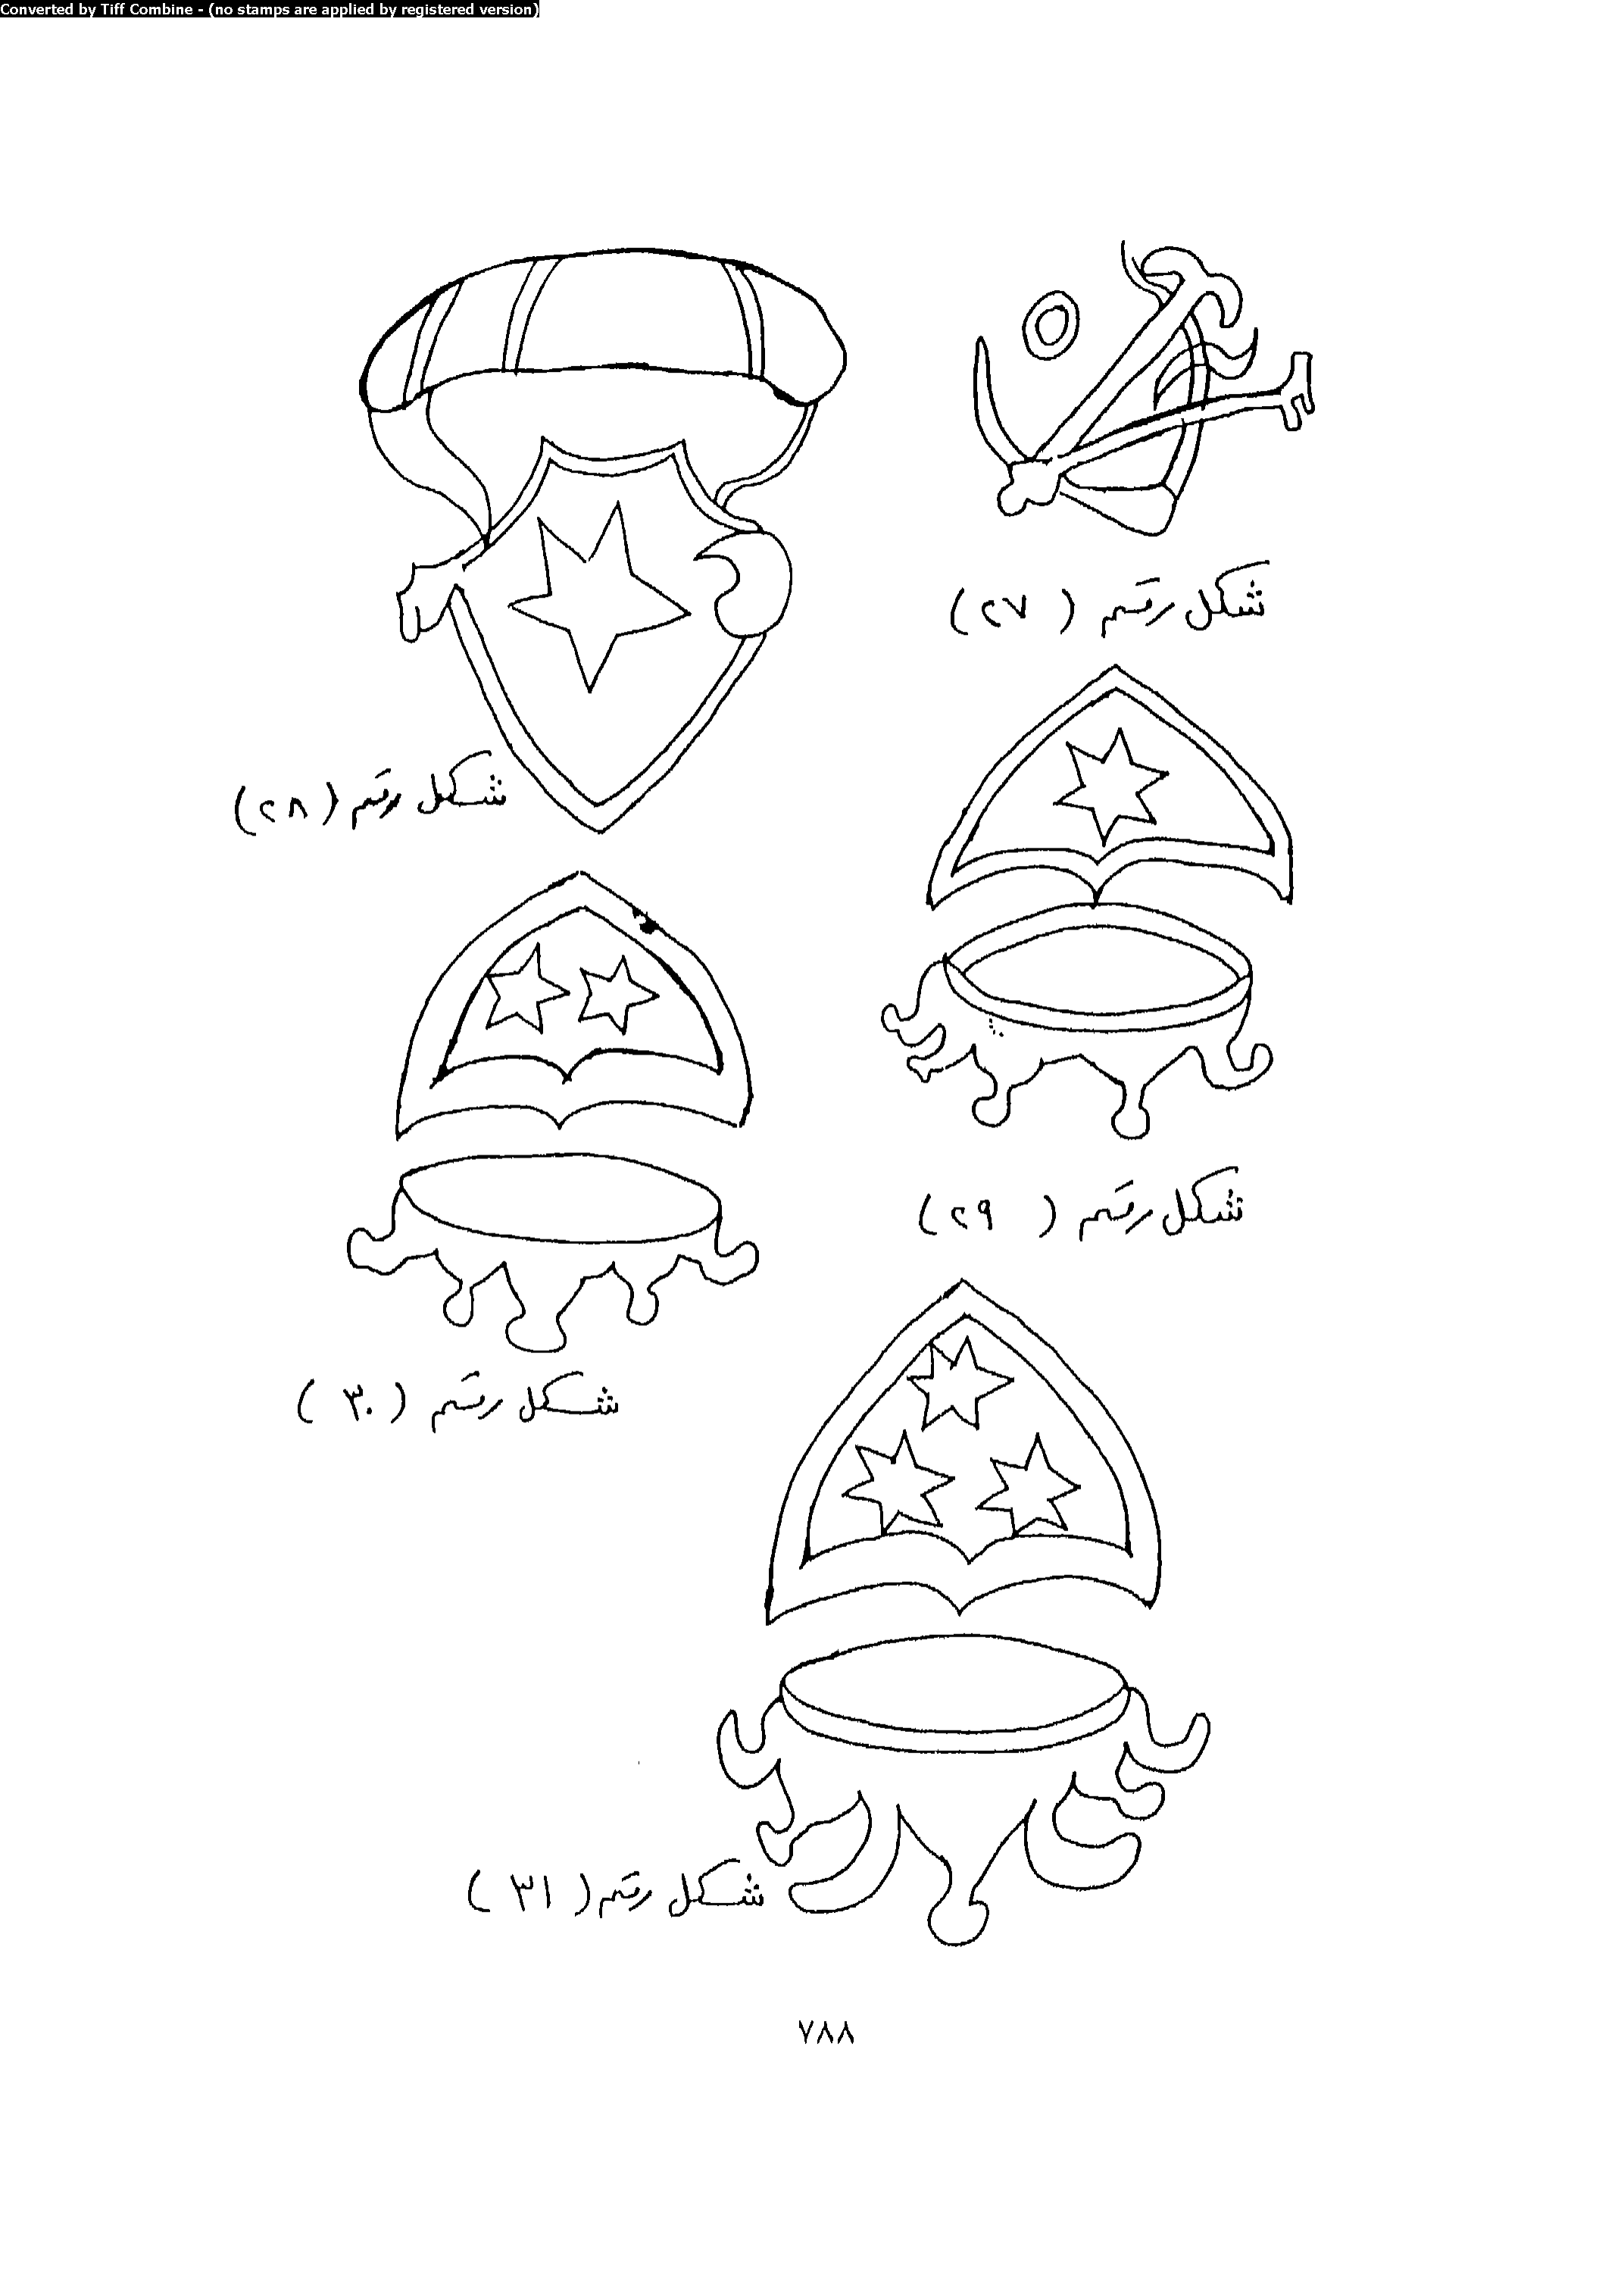 Converted by Tiff Combine - (no stamps are applied by registered version)
شكل رقم (٢٧)
شكل رقم (٢٨)
شكل رقم (٢٩)
شكل رقم (٣٠)
شكل رقم (٣١)
٧٨٨